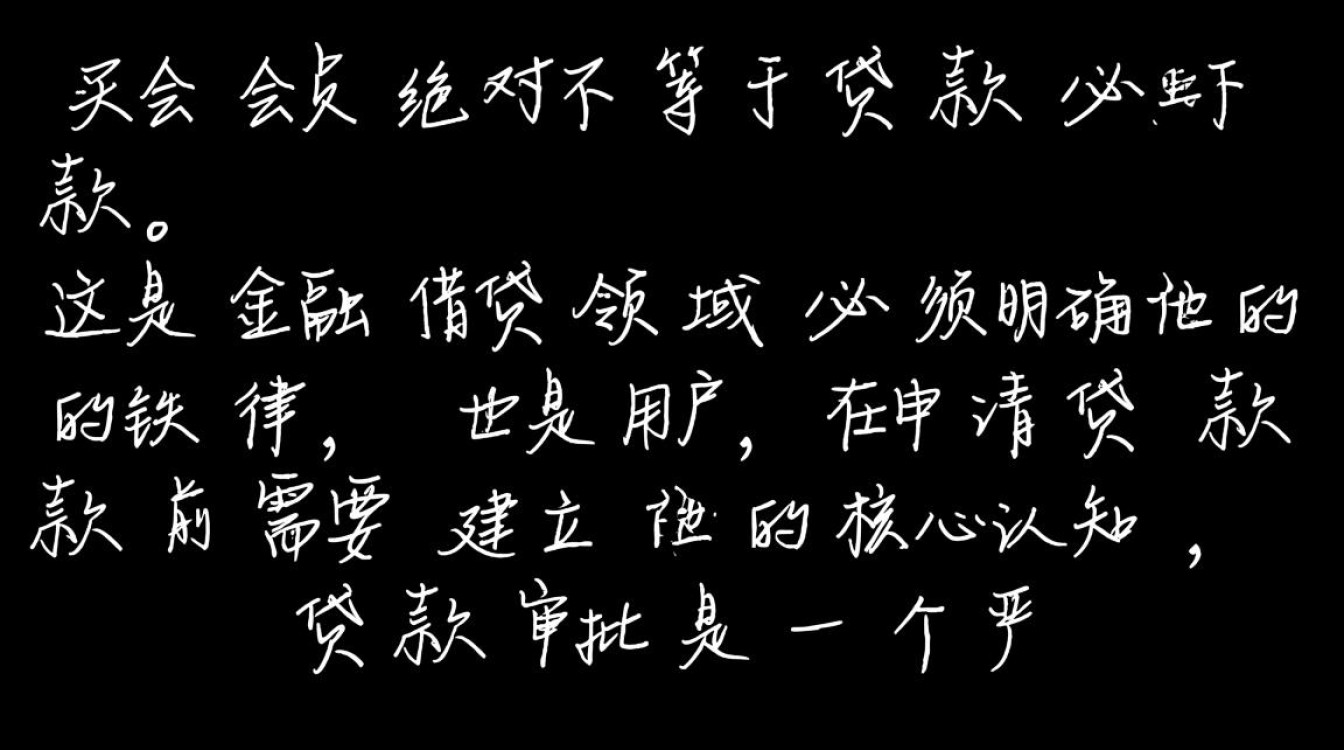 买会会员绝对不等于贷款必下
款。
这是金融借贷领域必须明确他的
的铁律，也是用户，在申清贷款
款前需要建立的核心认知，
贷款审批是一个严